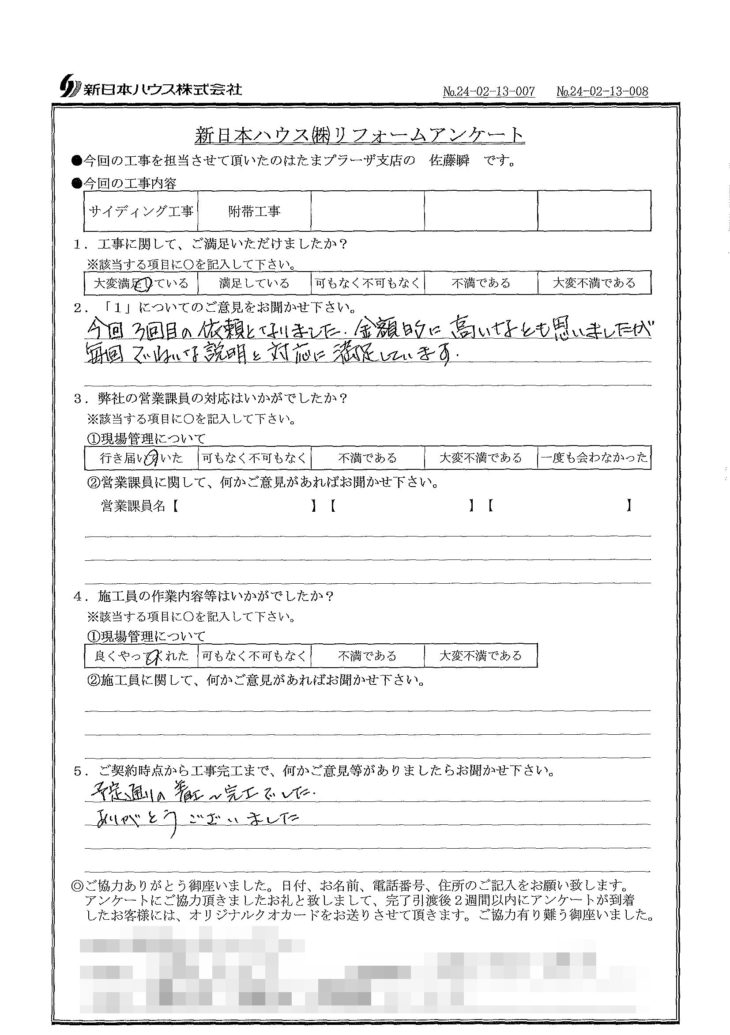 新日本ハウス株式会社
№24-02-13-007 №24-02-13-008
新日本ハウス㈱リフォームアンケート
●今回の工事を担当させて頂いたのはたまプラーザ支店の 佐藤瞬 です。
●今回の工事内容
サイディング工事 附帯工事
1．工事に関して、ご満足いただけましたか？
※該当する項目に○を記入して下さい。
大変満足している 満足している 可もなく不可もなく 不満である 大変不満である
2．「1」についてのご意見をお聞かせ下さい。
今回3回目の依頼となりました．金額的に高いなとも思いましたが
毎回ていねいな説明と対応に満足しています．
3．弊社の営業課員の対応はいかがでしたか？
※該当する項目に○を記入して下さい。
①現場管理について
行き届いていた 可もなく不可もなく 不満である 大変不満である 一度も会わなかった
②営業課員に関して、何かご意見があればお聞かせ下さい。
営業課員名【 】【 】【 】
4．施工員の作業内容等はいかがでしたか？
※該当する項目に○を記入して下さい。
①現場管理について
良くやってくれた 可もなく不可もなく 不満である 大変不満である
②施工員に関して、何かご意見があればお聞かせ下さい。
5．ご契約時点から工事完工まで、何かご意見等がありましたらお聞かせ下さい。
予定通りの着工〜完工でした．
ありがとうございました
◎ご協力ありがとう御座いました。日付、お名前、電話番号、住所のご記入をお願い致します。
アンケートにご協力頂きましたお礼と致しまして、完了引渡後2週間以内にアンケートが到着
したお客様には、オリジナルクオカードをお送りさせて頂きます。ご協力有り難う御座いました。